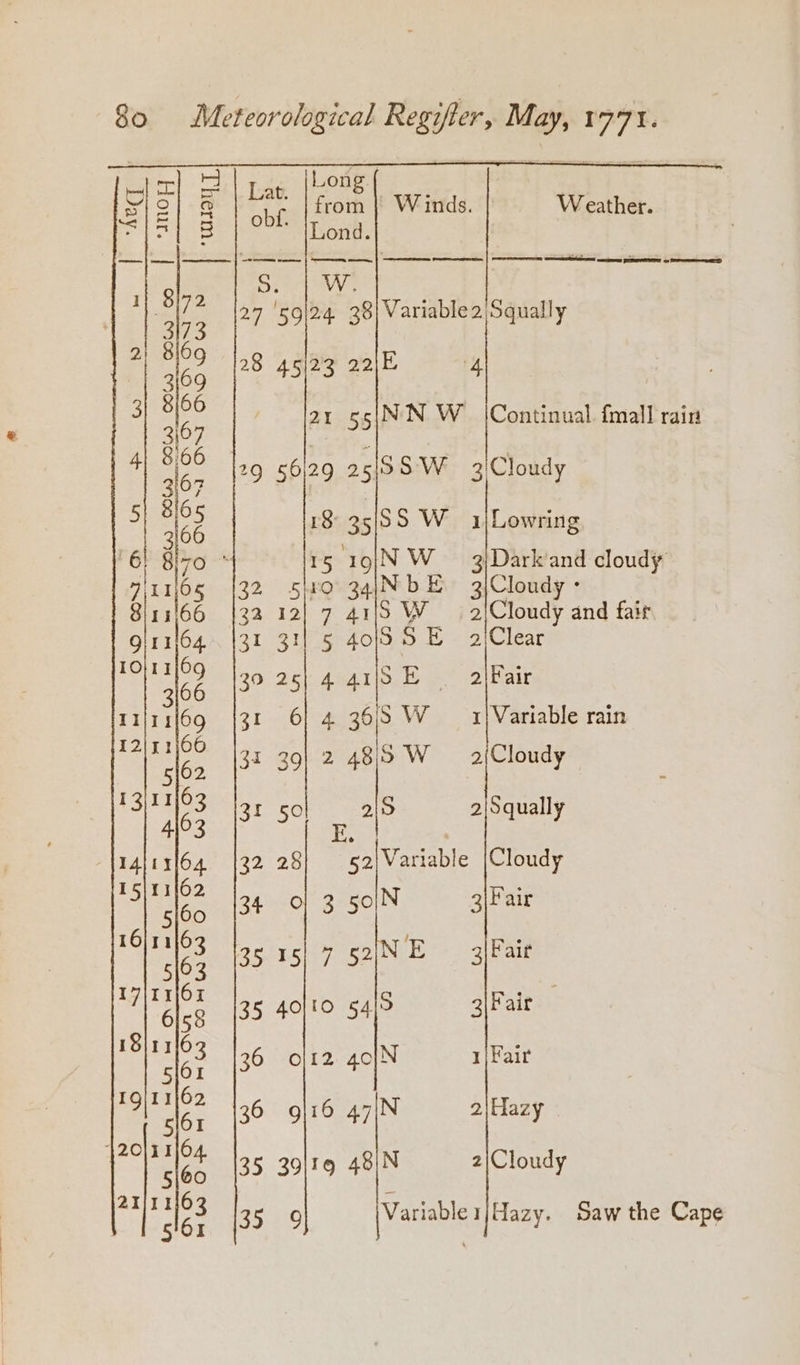 80 Meteorological Regiſter, May, 1771.
Day. | Hour. | Therm. | Lat. obſ. | Long from Lond. | Winds. | Weather.
S. | W.
1 | 8 | 72 | 27 59 | 24 38 | Variable 2 | Squally
3 | 73
2 | 8 | 69 | 28 45 | 23 22 | E 4
3 | 69
3 | 8 | 66 | 21 55 | N N W | Continual ſmall rain
3 | 67
4 | 8 | 66 | 29 56 | 29 25 | S S W 3 | Cloudy
3 | 67
5 | 8 | 65 | 18 35 | S S W 1 | Lowring
3 | 66
6 | 8 | 70 | 15 19 | N W 3 | Dark and cloudy
7 | 11 | 65 | 32 5 | 10 34 | N b E 3 | Cloudy
8 | 11 | 66 | 32 12 | 7 41 | S W 2 | Cloudy and fair
9 | 11 | 64 | 31 31 | 5 40 | S S E 2 | Clear
10 | 11 | 69 | 30 25 | 4 41 | S E 2 | Fair
3 | 66
11 | 11 | 69 | 31 6 | 4 36 | S W 1 | Variable rain
12 | 11 | 66 | 31 39 | 2 48 | S W 2 | Cloudy
5 | 62
13 | 11 | 63 | 31 50 | 2 | S 2 | Squally
4 | 63
E.
14 | 11 | 64 | 32 28 | 52 | Variable | Cloudy
15 | 11 | 62 | 34 0 | 3 50 | N 3 | Fair
5 | 60
16 | 11 | 63 | 35 15 | 7 52 | N E 3 | Fair
5 | 63
17 | 11 | 61 | 35 40 | 10 54 | S 3 | Fair
6 | 58
18 | 11 | 63 | 36 0 | 12 40 | N 1 | Fair
5 | 61
19 | 11 | 62 | 36 9 | 16 47 | N 2 | Hazy
5 | 61
20 | 11 | 64 | 35 39 | 19 48 | N 2 | Cloudy
5 | 60
21 | 11 | 63 | 35 9 | Variable 1 | Hazy. Saw the Cape
5 | 61